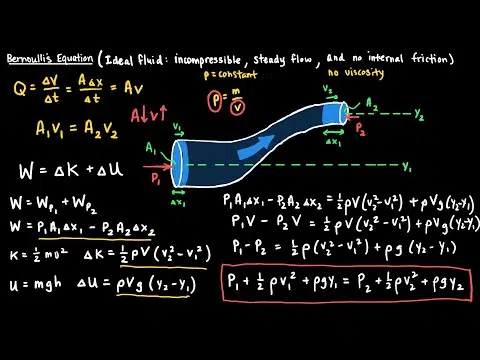 Bernoulli's Equation (Ideal fluid: incompressible, steady flow, and no internal friction)
ρ = constant
no viscosity
Q = ΔV/Δt = AΔx/Δt = Av
A↓v↑
ρ = m/V
A₁v₁ = A₂v₂
W = ΔK + ΔU
v₂
A₂
P₂
y₂
Δx₁
v₁
A₁
P₁
y₁
Δx₁
W = Wₚ₁ + Wₚ₂
W = P₁A₁Δx₁ - P₂A₂Δx₂
K = ½mv² ΔK = ½ρV(v₂²-v₁²)
U = mgh ΔU = ρVg(y₂-y₁)
P₁A₁Δx₁ - P₂A₂Δx₂ = ½ρV(v₂²-v₁²) + ρVg(y₂-y₁)
P₁V - P₂V = ½ρV(v₂²-v₁²) + ρVg(y₂-y₁)
P₁-P₂ = ½ρ(v₂²-v₁²) + ρg(y₂-y₁)
P₁ + ½ρv₁² + ρgy₁ = P₂ + ½ρv₂² + ρgy₂